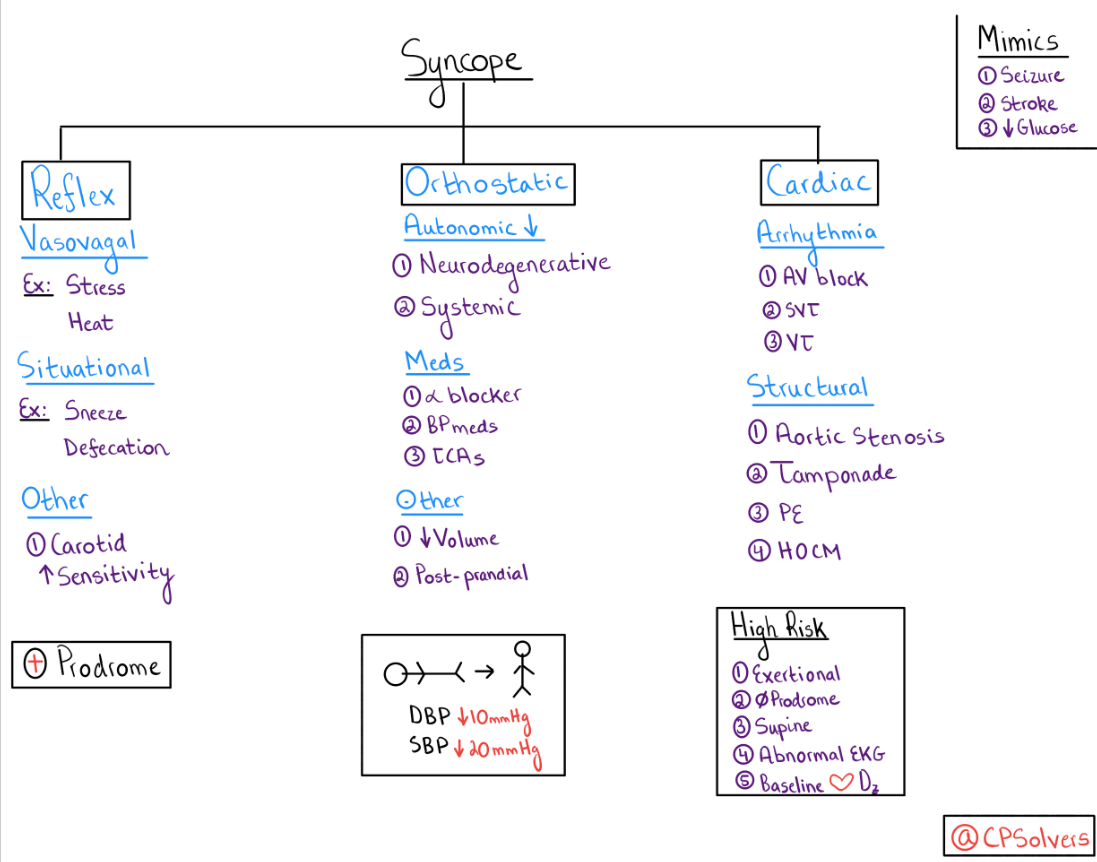 Syncope
Mimics
① Seizure
② Stroke
③ ↓ Glucose
Reflex
Vasovagal
Ex: Stress
Heat
Situational
Ex: Sneeze
Defecation
Other
① Carotid
↑ Sensitivity
⊕ Prodrome
Orthostatic
Autonomic ↓
① Neurodegenerative
② Systemic
Meds
① α blocker
② BP meds
③ TCAs
Other
① ↓ Volume
② Post-prandial
→
DBP ↓ 10mmHg
SBP ↓ 20mmHg
Cardiac
Arrhythmia
① AV block
② SVT
③ VT
Structural
① Aortic Stenosis
② Tamponade
③ PE
④ HOCM
High Risk
① Exertional
② Ø Prodrome
③ Supine
④ Abnormal EKG
⑤ Baseline ♡ Dz
@CPSolvers